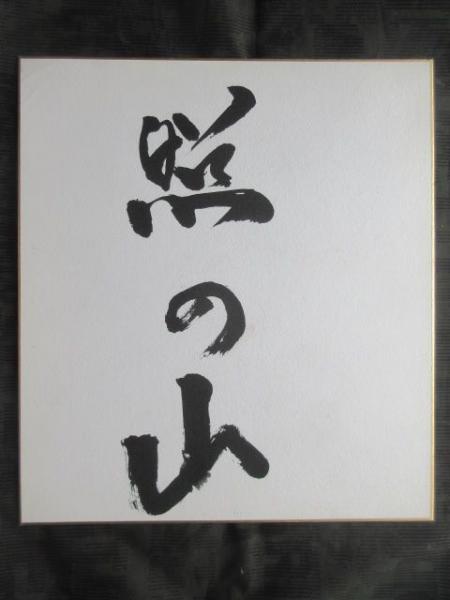 照の山